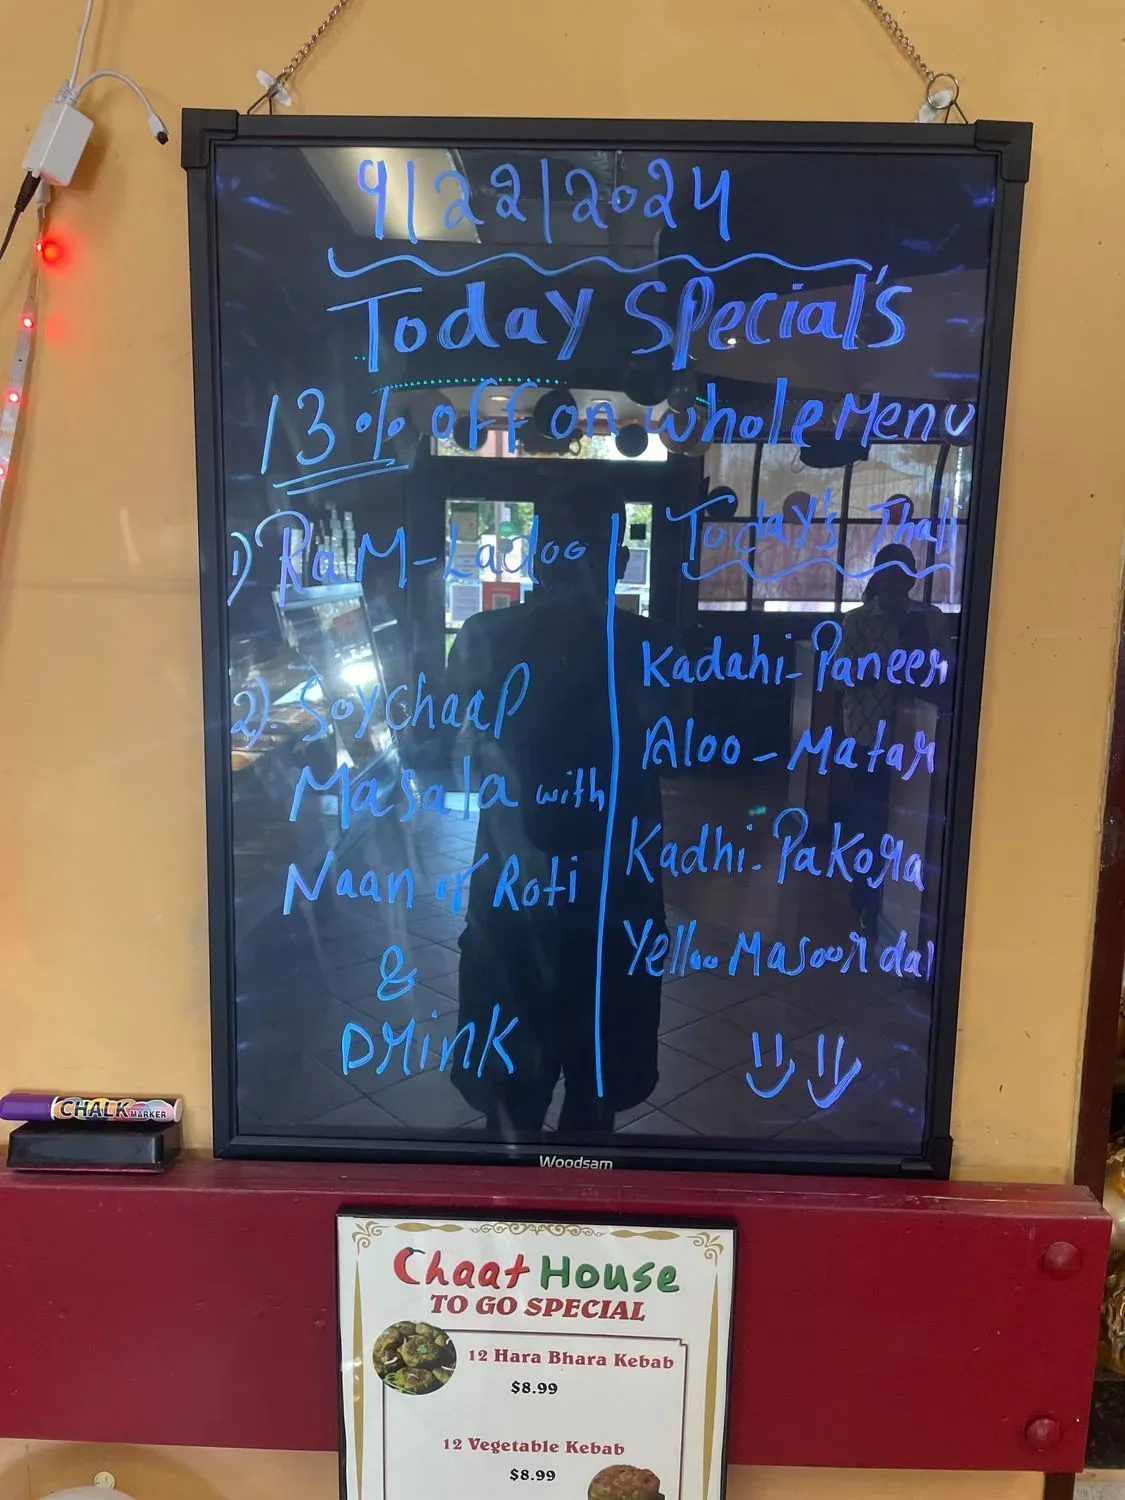 9/22/2024
Today Special's
13% off on whole Menu
1) Ram-Ladoo
2) Soychaap
Masala with
Naan or Roti
&
Drink
Today's Thali
Kadahi-Paneer
Aloo-Matar
Kadhi-Pakora
Yelloo Masoor dal
Woodsam
CHALK MARKER
Chaat House
TO GO SPECIAL
12 Hara Bhara Kebab
$8.99
12 Vegetable Kebab
$8.99